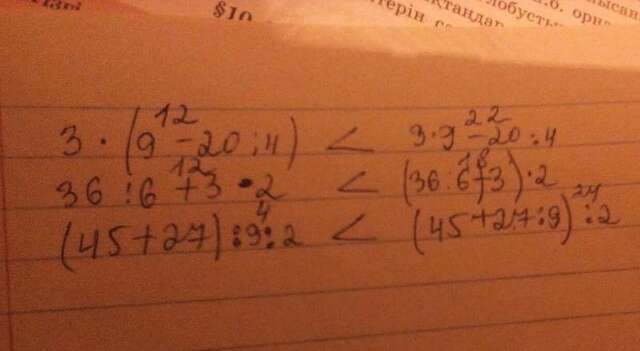 §10
3 · (9 - 20 : 4) < 3 · 9 - 20 : 4
12 22
36 : 6 + 3 · 2 < (36 : 6 + 3) · 2
12 18
(45 + 27) : 9 : 2 < (45 + 27 : 9) : 2
4 24